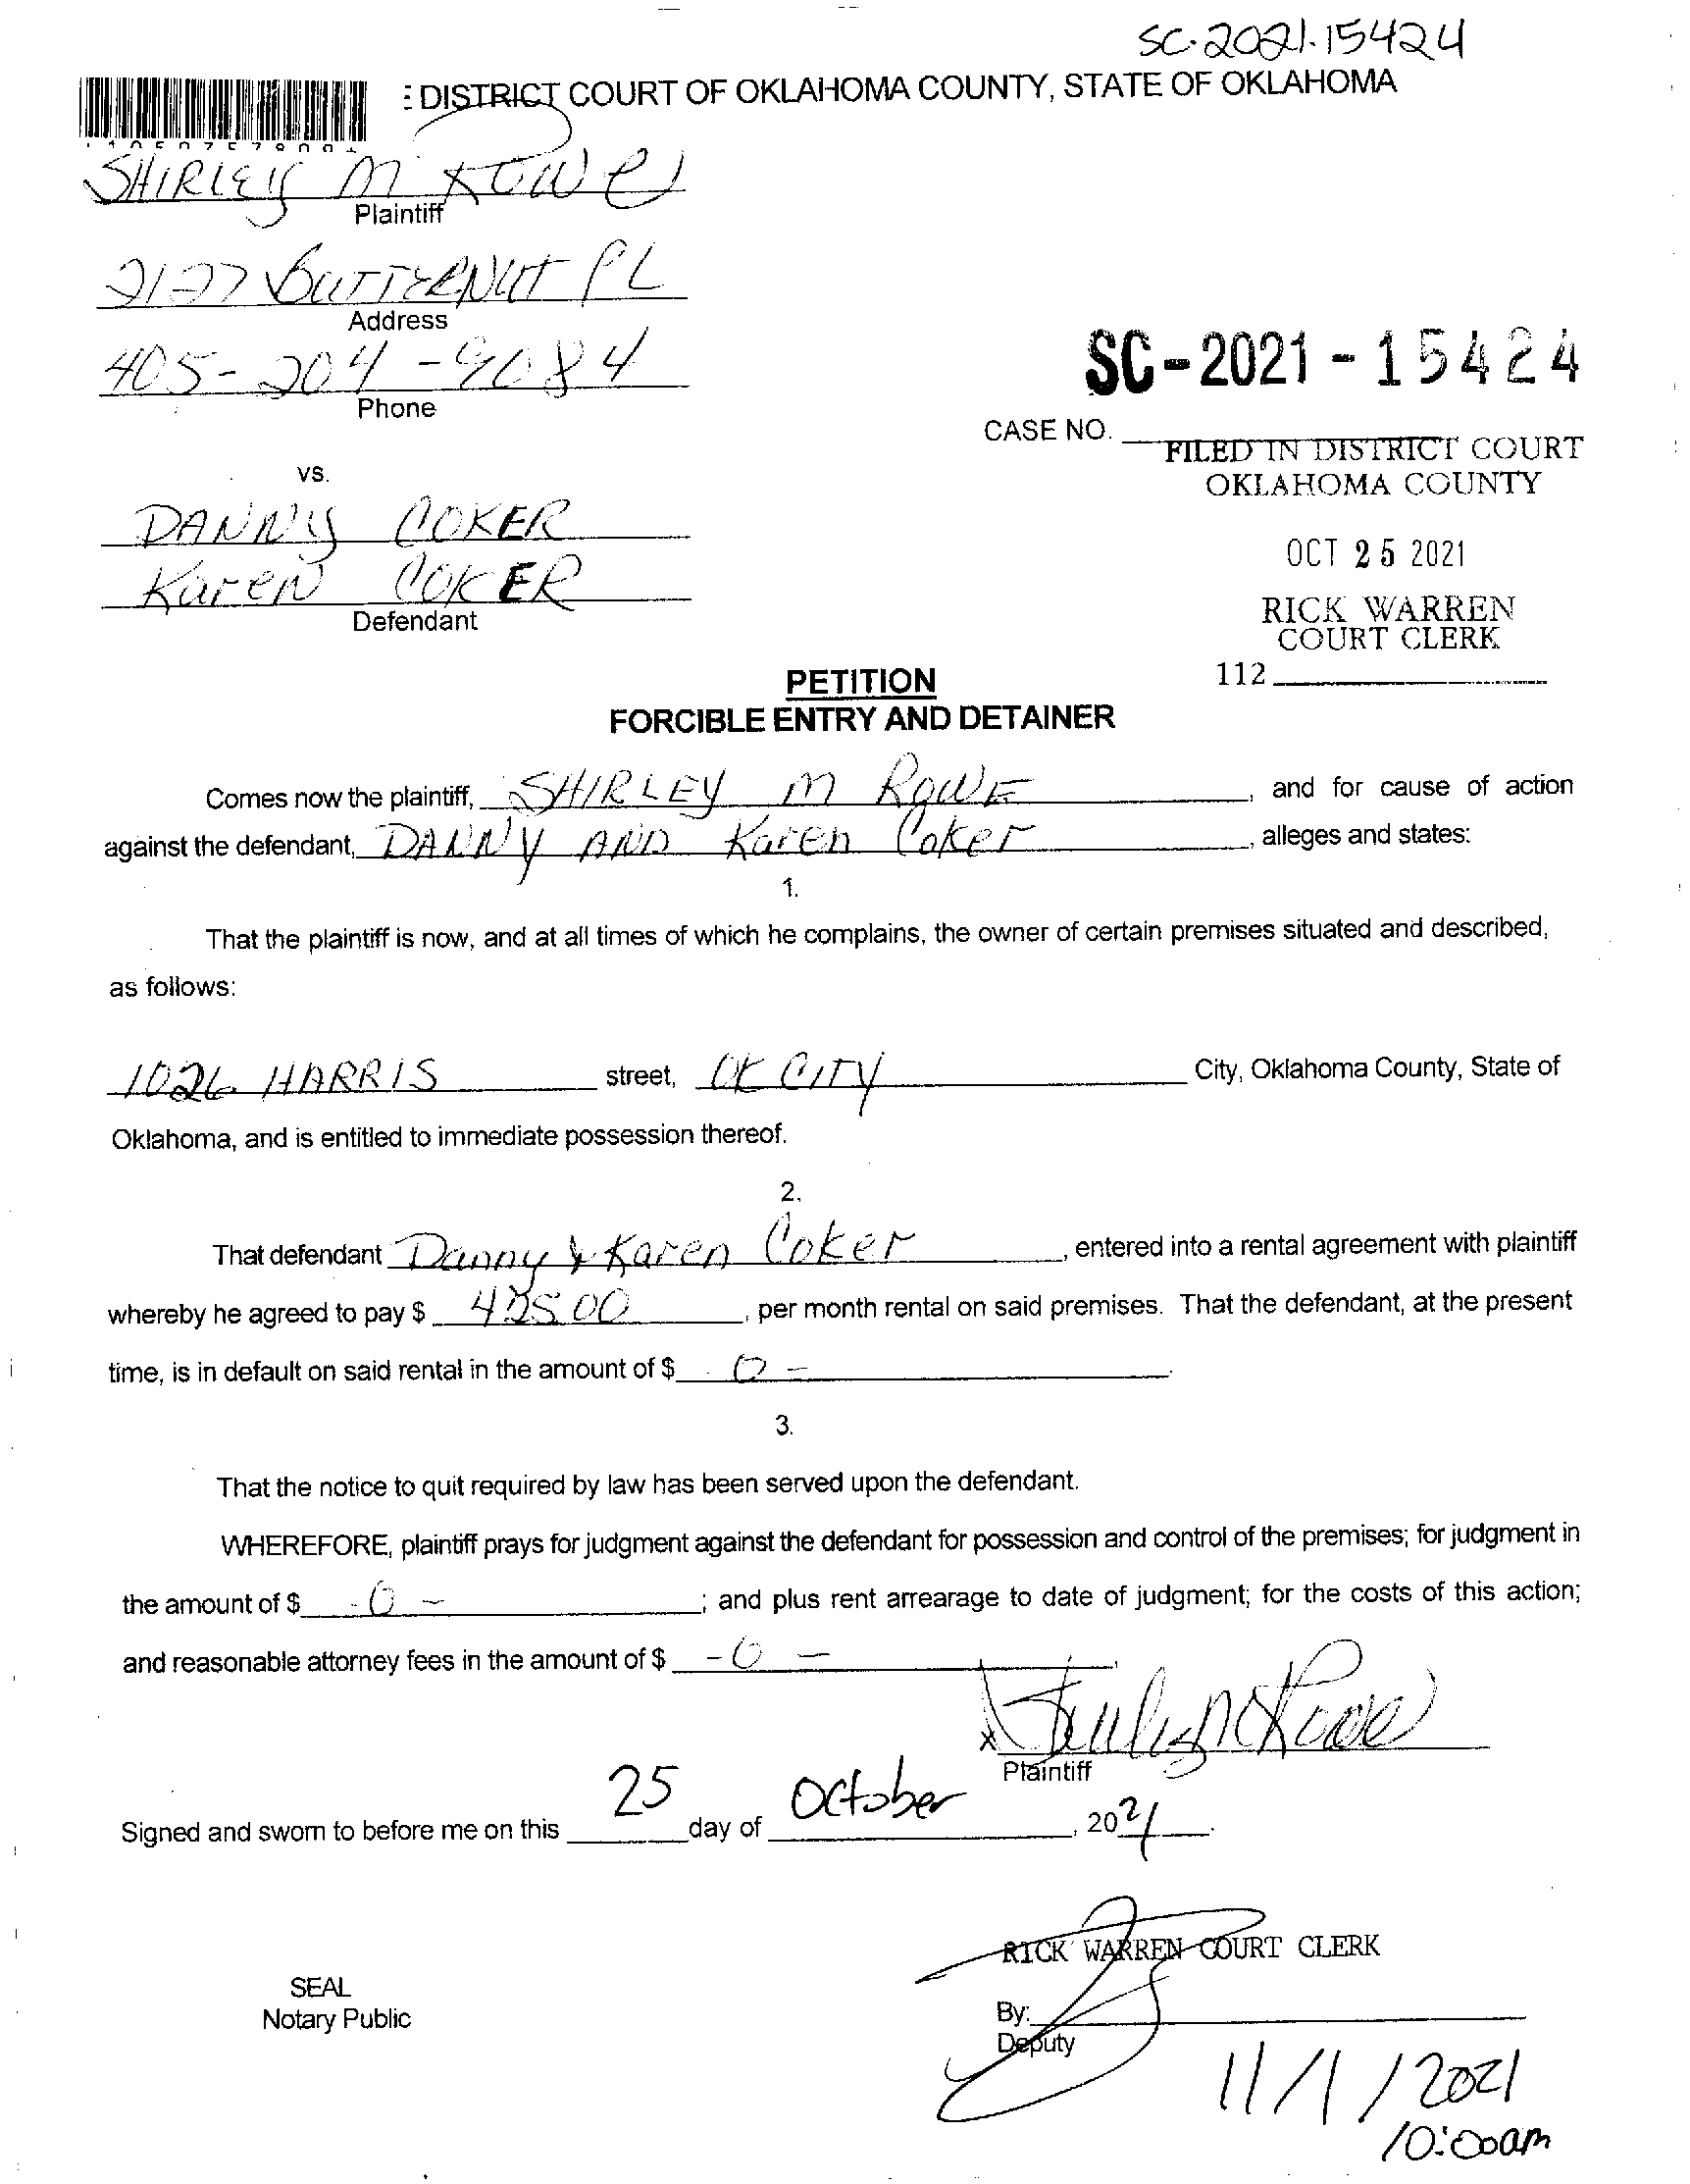 SC-2021-15424
: DISTRICT COURT OF OKLAHOMA COUNTY, STATE OF OKLAHOMA
SHIRLEY M ROWE
Plaintiff
2127 BUTTERNUT PL
Address
405-204-9084
Phone
SC-2021-15424
CASE NO.
FILED IN DISTRICT COURT
OKLAHOMA COUNTY
vs.
DANNY COKER
OCT 25 2021
Karen COKER
RICK WARREN
Defendant
COURT CLERK
112
PETITION
FORCIBLE ENTRY AND DETAINER
Comes now the plaintiff, SHIRLEY M ROWE, and for cause of action
against the defendant, DANNY AND Karen Coker, alleges and states:
1.
That the plaintiff is now, and at all times of which he complains, the owner of certain premises situated and described,
as follows:
1026 HARRIS street, OK CITY City, Oklahoma County, State of
Oklahoma, and is entitled to immediate possession thereof.
2.
That defendant Danny & Karen Coker, entered into a rental agreement with plaintiff
whereby he agreed to pay $ , per month rental on said premises. That the defendant, at the present
time, is in default on said rental in the amount of $ 0 -.
3.
That the notice to quit required by law has been served upon the defendant.
WHEREFORE, plaintiff prays for judgment against the defendant for possession and control of the premises; for judgment in
the amount of $ - 0 - ; and plus rent arrearage to date of judgment; for the costs of this action;
and reasonable attorney fees in the amount of $ - 0 - .
x Shirley M Rowe
Plaintiff
Signed and sworn to before me on this 25 day of October, 2021.
RICK WARREN COURT CLERK
SEAL
Notary Public
By:
Deputy
11/1/2021
10:00am